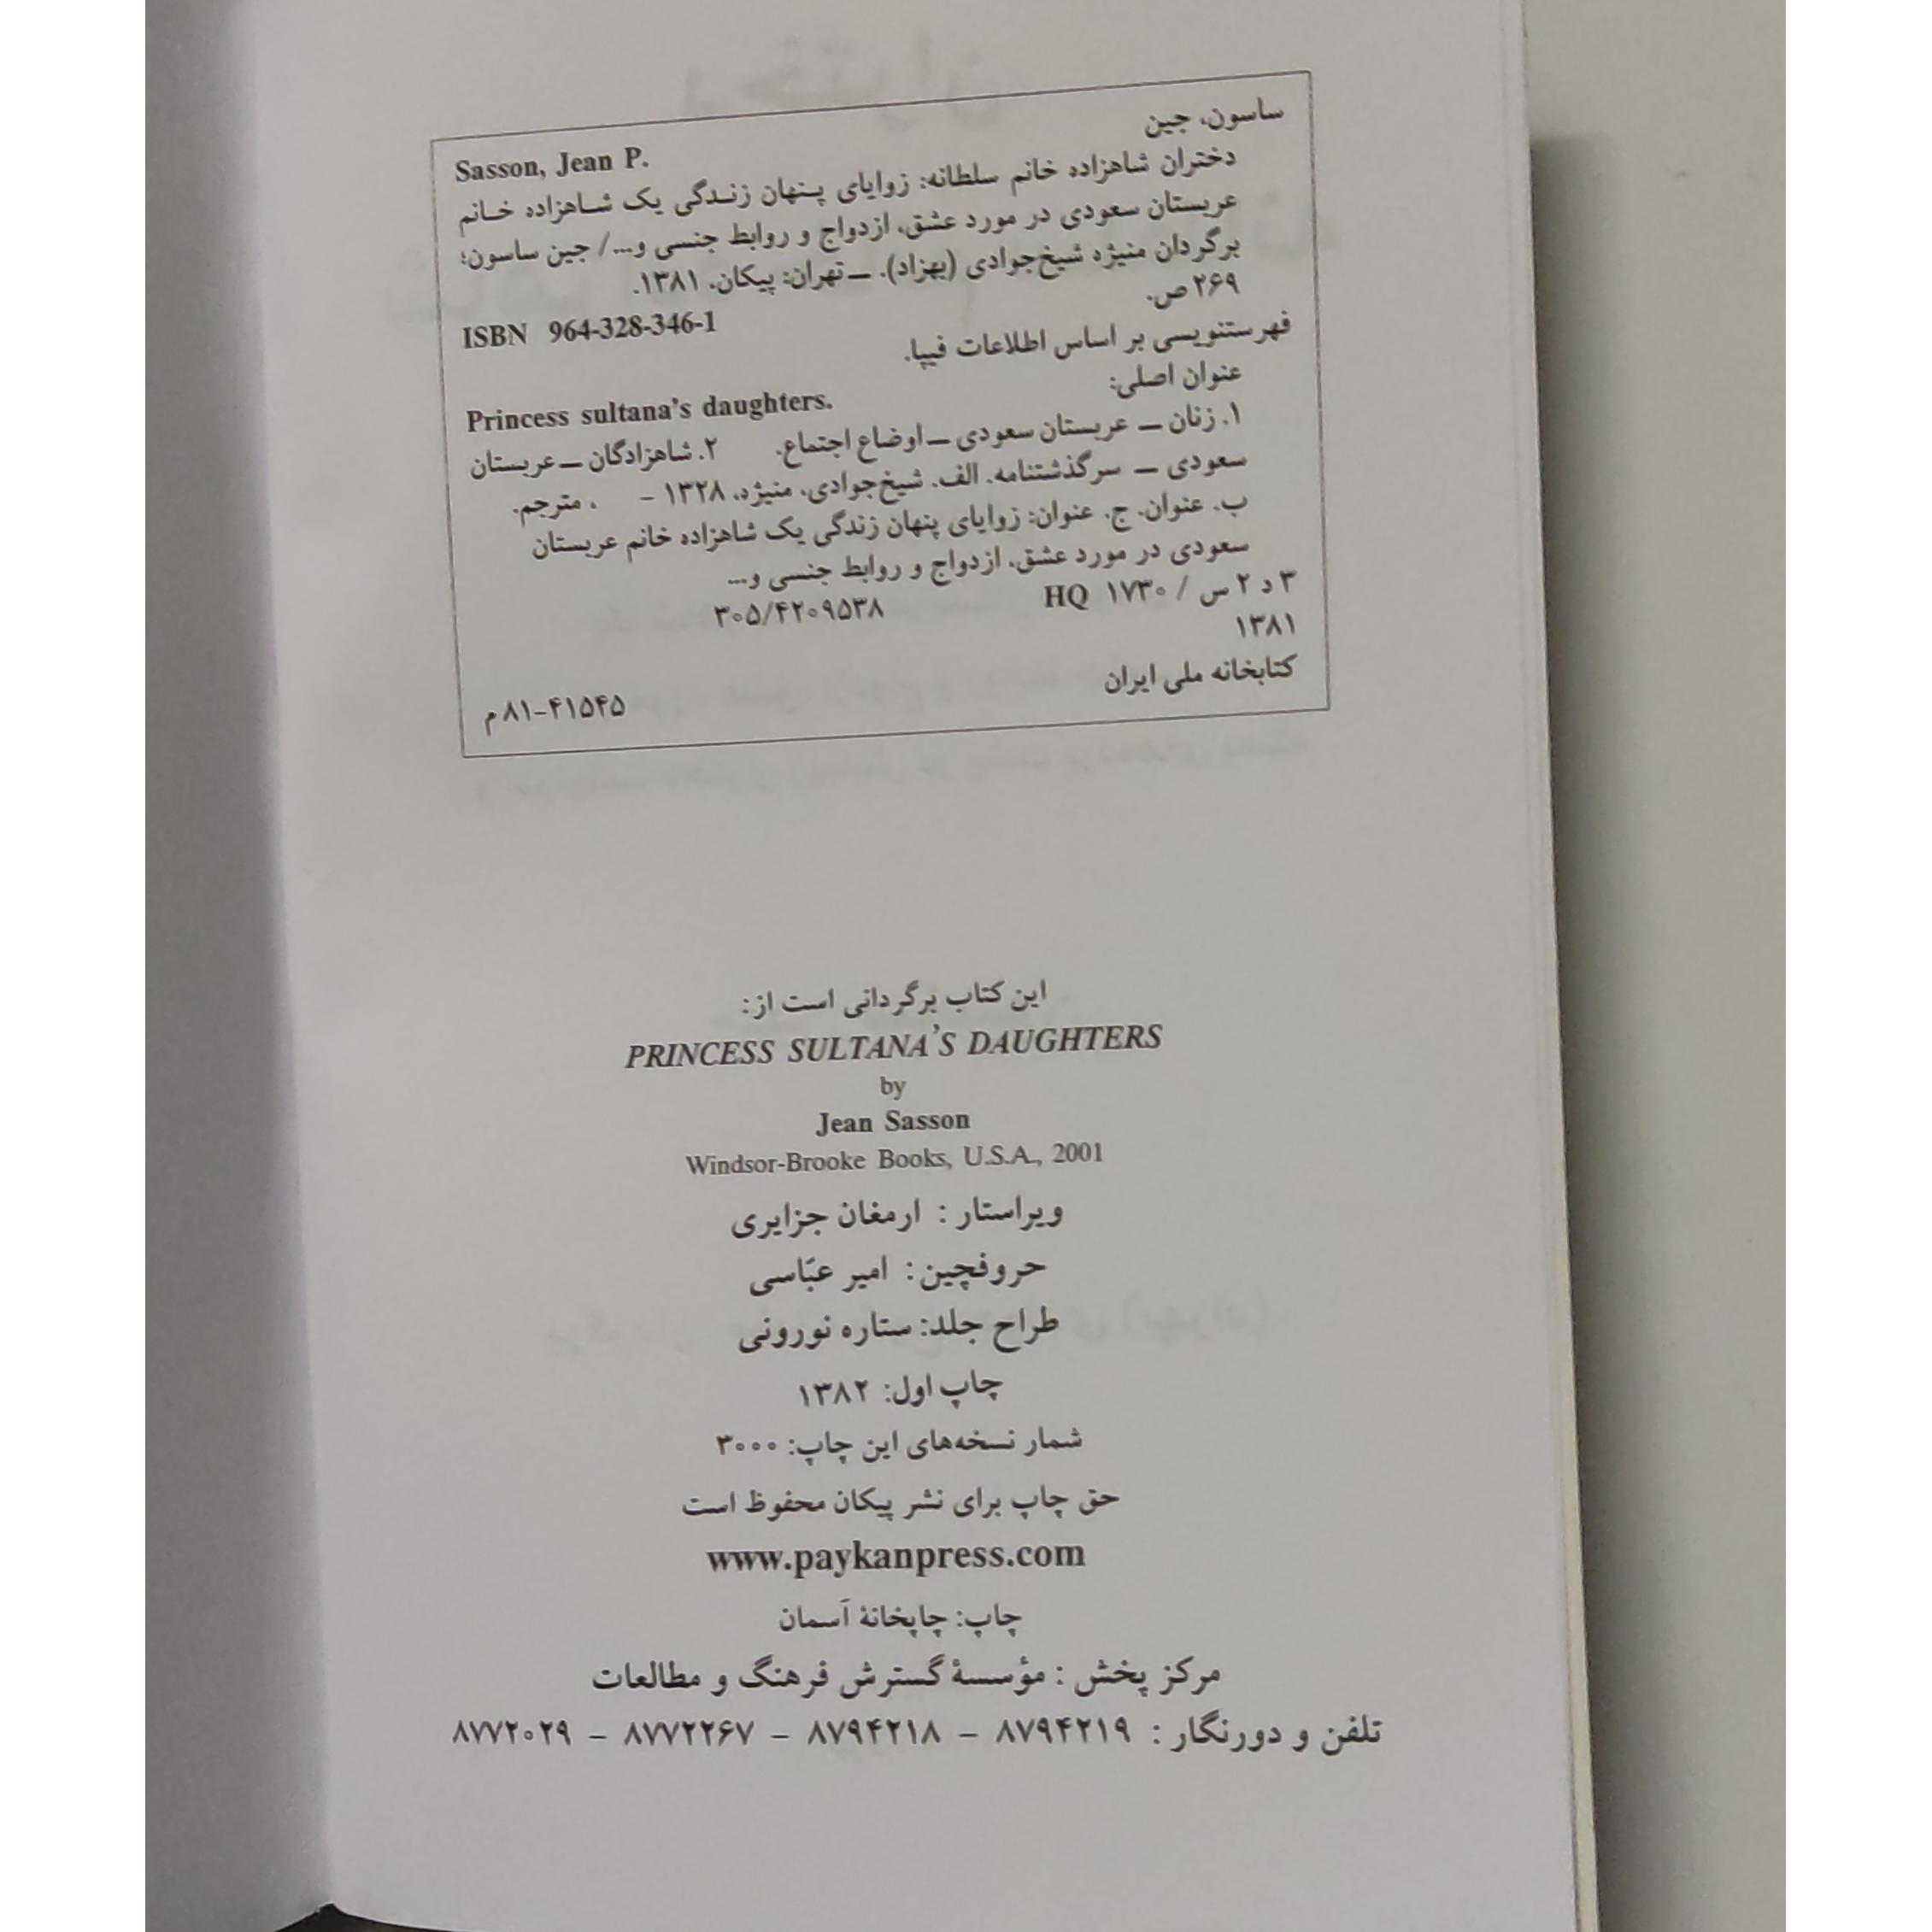 ساسون، جین
Sasson, Jean P.
دختران شاهزاده خانم سلطانه: زوایای پنهان زندگی یک شاهزاده خانم
عربستان سعودی در مورد عشق، ازدواج و روابط جنسی و.../ جین ساسون؛
برگردان منیژه شیخ‌جوادی (بهزاد). ــ تهران: پیکان، ۱۳۸۱.
۲۶۹ ص.
ISBN 964-328-346-1
فهرستنویسی بر اساس اطلاعات فیپا.
عنوان اصلی:
Princess sultana's daughters.
۱. زنان ــ عربستان سعودی ــ اوضاع اجتماع. ۲. شاهزادگان ــ عربستان
سعودی ــ سرگذشتنامه. الف. شیخ‌جوادی، منیژه، ۱۳۲۸ - ، مترجم.
ب. عنوان. ج. عنوان: زوایای پنهان زندگی یک شاهزاده خانم عربستان
سعودی در مورد عشق، ازدواج و روابط جنسی و...
۳ د ۲ س / ۱۷۳۰ HQ ۳۰۵/۴۲۰۹۵۳۸
۱۳۸۱
کتابخانه ملی ایران ۸۱-۴۱۵۴۵ م
این کتاب برگردانی است از:
PRINCESS SULTANA'S DAUGHTERS
by
Jean Sasson
Windsor-Brooke Books, U.S.A., 2001
ویراستار : ارمغان جزایری
حروفچین: امیر عبّاسی
طراح جلد: ستاره نورونی
چاپ اول: ۱۳۸۲
شمار نسخه‌های این چاپ: ۳۰۰۰
حق چاپ برای نشر پیکان محفوظ است
www.paykanpress.com
چاپ: چاپخانهٔ آسمان
مرکز پخش : مؤسسهٔ گسترش فرهنگ و مطالعات
تلفن و دورنگار : ۸۷۹۴۲۱۹ - ۸۷۹۴۲۱۸ - ۸۷۷۲۲۶۷ - ۸۷۷۲۰۲۹